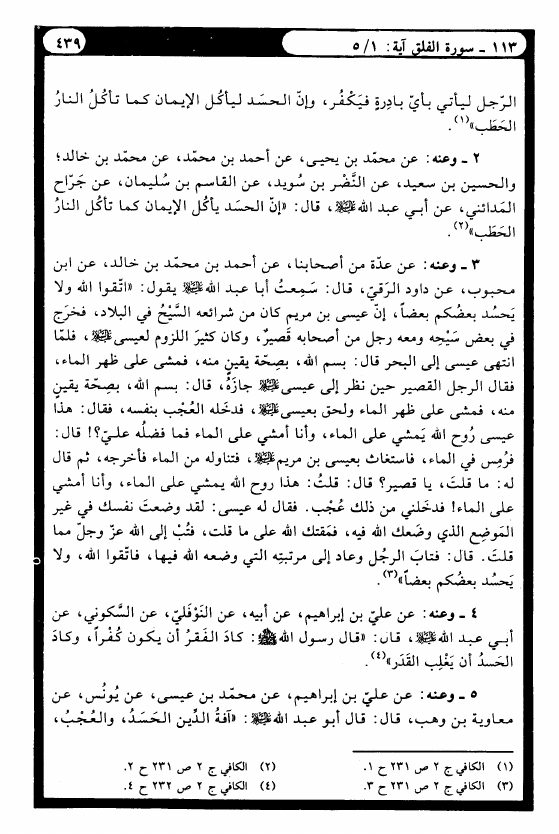 ١١٣ ـ سورة الفلق آية: ١/ ٥
٤٣٩
الرّجل ليأتي بأيّ بادِرةٍ فيَكْفُر، وإنّ الحسَد ليأكُل الإيمان كما تأكُلُ النارُ
الحَطَب»(١).
٢ ـ وعنه: عن محمّد بن يحيى، عن أحمد بن محمّد، عن محمّد بن خالد؛
والحسين بن سعيد، عن النَّضْر بن سُويد، عن القاسم بن سُليمان، عن جَرّاح
المَدائني، عن أبي عبد الله عليه السلام، قال: «إنّ الحسد يأكل الإيمان كما تأكل النارُ
الحَطَب»(٢).
٣ ـ وعنه: عن عدّة من أصحابنا، عن أحمد بن محمّد بن خالد، عن ابن
محبوب، عن داود الرَقيّ، قال: سَمِعتُ أبا عبد الله عليه السلام يقول: «اتّقوا الله ولا
يَحسُد بعضُكم بعضاً، إنّ عيسى بن مريم كان من شرائعه السَّيْحُ في البلاد، فخرَج
في بعض سَيْحِه ومعه رجل من أصحابه قَصيرٌ، وكان كثيرَ اللزوم لعيسى عليه السلام، فلمّا
انتهى عيسى إلى البحر قال: بسم الله، بصِحّة يقينٍ منه، فمشى على ظهر الماء،
فقال الرجل القصير حين نظر إلى عيسى عليه السلام جازَهُ، قال: بسم الله، بصِحّة يقينٍ
منه، فمشى على ظهر الماء ولحق بعيسى عليه السلام، فدخَله العُجْب بنفسه، فقال: هذا
عيسى رُوح الله يَمشي على الماء، وأنا أمشي على الماء فما فضلُه عليّ؟! قال:
فرُمِس في الماء، فاستغاث بعيسى بن مريم عليه السلام، فتناوله من الماء فأخرجه، ثم قال
له: ما قلتَ، يا قصير؟ قال: قلتُ: هذا روح الله يمشي على الماء، وأنا أمشي
على الماء! فدخَلني من ذلك عُجْب. فقال له عيسى: لقد وضعتَ نفسك في غير
المَوضِع الذي وضَعك الله فيه، فمَقتك الله على ما قلت، فتُبْ إلى الله عزّ وجلّ مما
قلتَ. قال: فتابَ الرجُل وعاد إلى مرتبتِه التي وضعه الله فيها، فاتّقوا الله، ولا
يَحسُد بعضُكم بعضاً»(٣).
٤ ـ وعنه: عن عليّ بن إبراهيم، عن أبيه، عن النَوْفَليّ، عن السَّكوني، عن
أبي عبد الله عليه السلام، قال: «قال رسول الله ﷺ: كادَ الفَقرُ أن يكون كُفْراً، وكادَ
الحَسدُ أن يَغْلِب القَدَر»(٤).
٥ ـ وعنه: عن عليّ بن إبراهيم، عن محمّد بن عيسى، عن يُونُس، عن
معاوية بن وهب، قال: قال أبو عبد الله عليه السلام: «آفةُ الدِّين الحَسَدُ، والعُجْبُ،
(١) الكافي ج ٢ ص ٢٣١ ح ١.
(٢) الكافي ج ٢ ص ٢٣١ ح ٢.
(٣) الكافي ج ٢ ص ٢٣١ ح ٣.
(٤) الكافي ج ٢ ص ٢٣٢ ح ٤.